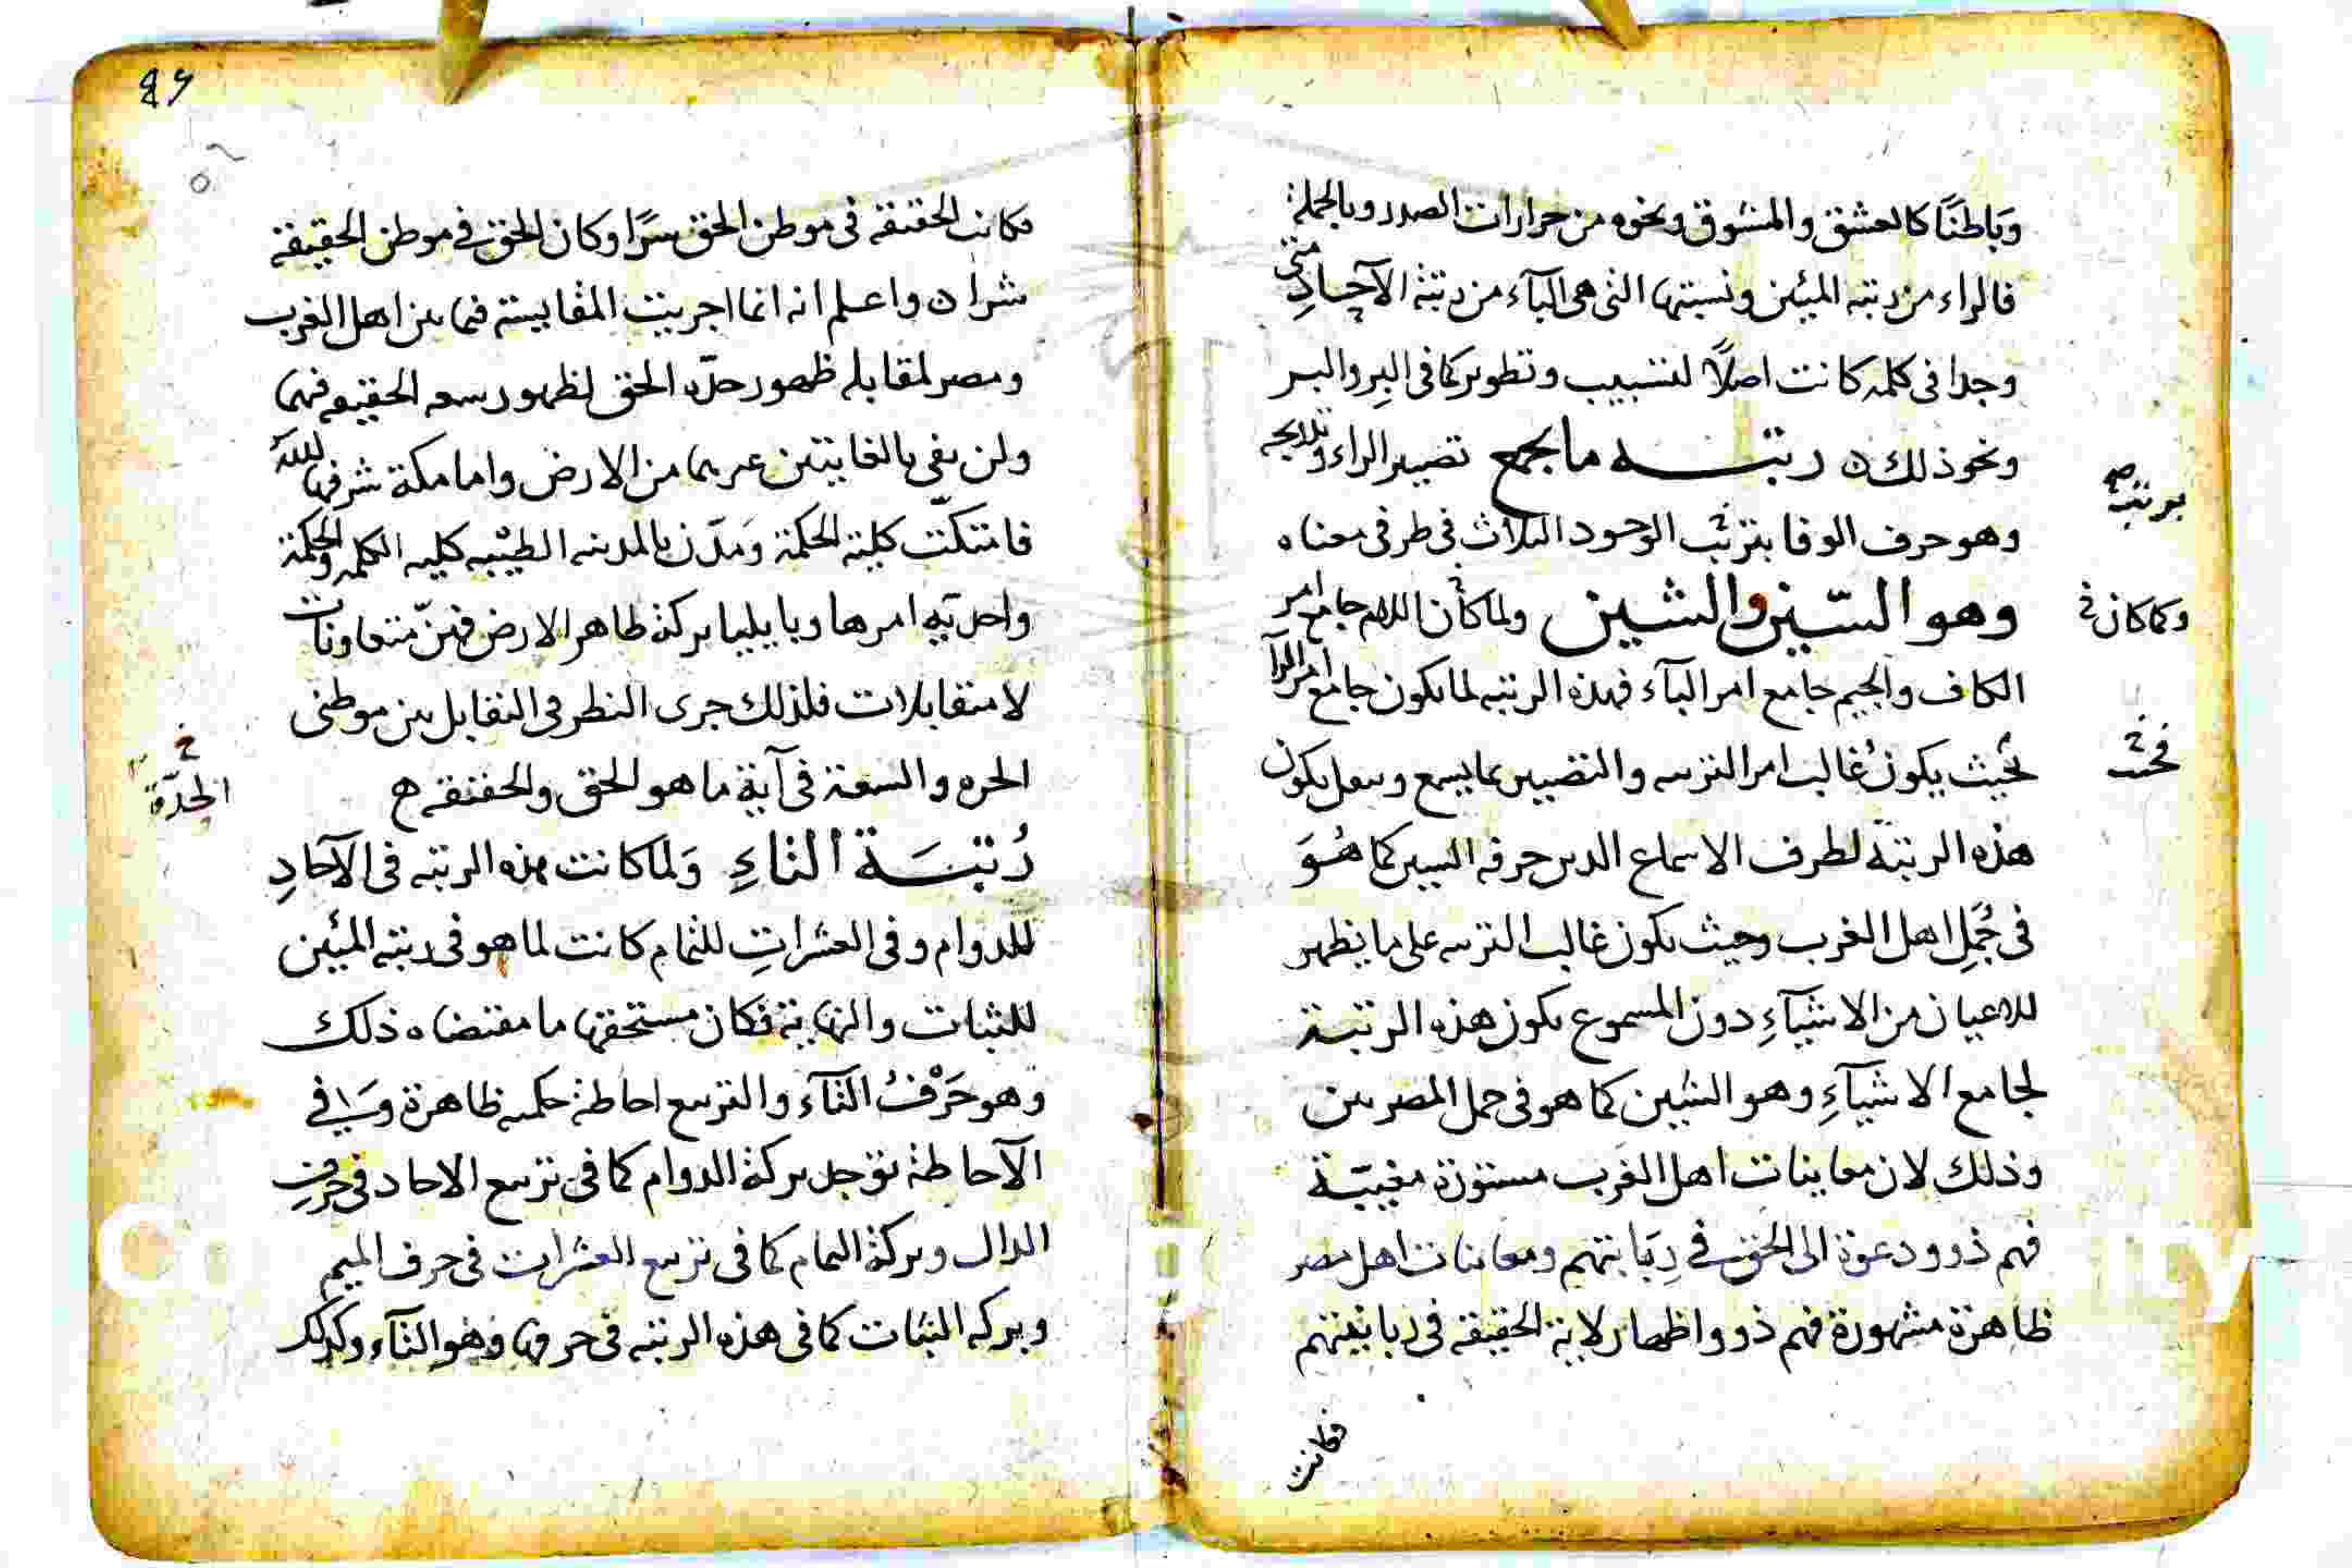 وَبَاطنًا كالعشق والمشوق ونحوه من حرارات الصدر وبالجملة
فالراء من رتبه المئين ونسبتها التى هى البآء من رتبة الآحادِ متى
وجدا فى كلمه كانت اصلًا لتسبيب وتطوير كما فى البِر والبـر
ونحو ذلك ن رتبــه ما يجمع تصيير الراء و
بربتب صح
وهو حرف الوفا بترتب الوجود الثلاث فى طرفى معناه
وهو السّين والشين ولما كان اللام جامع امر
وكما كان فى
الكاف والجيم جامع امر البآء فهذه الرتبه لما يكون جامع امر الرآ
بحيث يكون غالب امر الترتيب والتصيير بما يسمع ويعمل يكون
فحيث
هذه الرتبة لطرف الاسماع الذى حرفه السين كما هُوَ
فى جُمَلِ اهل الغرب وحيث يكون غالب الترتيب على ما يظهر
للاعيان من الاشيآءِ دون المسموع يكون هذه الرتبـة
لجامع الاشيآءِ وهو الشين كما هو فى جمل المصريين
وذلك لان معاينات اهل الغرب مستورة مغيبّة
فهم ذوو دعوة الى الحق فى ومعاينات اهل مصر
ظاهرة مشهورة فهم ذوو اظهار لاية الحقيقة فى
فكانت
فكانت الحقيقه فى موطن الحق سرًا وكان الحق فى موطن الحقيقة
شرا ن واعلم انه انما اجريت المقايسة فيما بين اهل الغرب
ومصر لمقابله ظهور حدّه الحق لظهور سعه الحقيقه فيهما
ولن يفى بالغايتين غيرهما من الارض واما مكة شرفها الله
كلية الحكمة وَمَدّن بالمدينه الطيّبه كليه الكلمه والحكمة
واحديّه امرها وبايليا بركة ظاهر الارض فهنّ متعاونات
لا متقابلات فلذلك جرى النظر فى التقابل بين موطنى
الحده والسعة فى آية ما هو الحق والحقيقه ه
الحِدّة خ
رُتبَــة التاءِ وَلما كانت هذه الرتبه فى الآحادِ
للدوام وفى العشراتِ للتمام كانت لما هو فى رتبه المئين
للثبات والنهاية فكان مستحقها ما مقتضاه ذلك
وهو حَرْفُ التآء والتربيع احاطة حكميه ظاهرة وَ فى
الآحاطة توجل بركة الدوام كما فى تربيع الاحاد فى حرفِ
الدال وبركة التمام كما فى تربيع العشرات فى حرف الميم
وبركه الثبات كما فى هذه الرتبه فى حرفها وهو التآء وكذلك